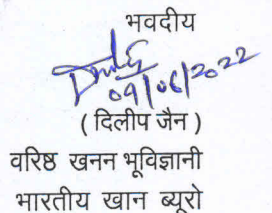 भवदीय
09/06/2022
( दिलीप जैन )
वरिष्ठ खनन भूविज्ञानी
भारतीय खान ब्यूरो